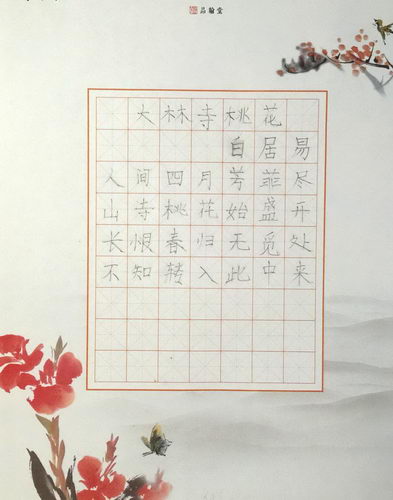 品翰堂
大林寺桃花
白居易
人间四月芳菲尽
山寺桃花始盛开
长恨春归无觅处
不知转入此中来